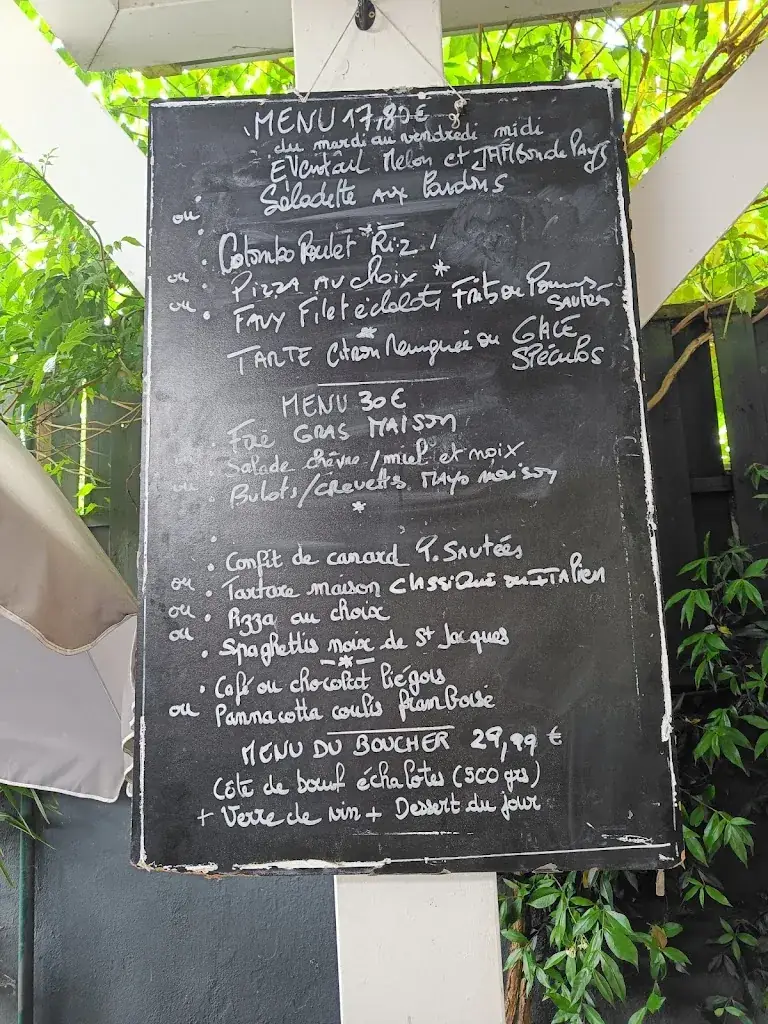 MENU 17,80€
du mardi au vendredi midi
Eventail Melon et JAMBon de Pays
ou Saladette aux Lardons
*
. Colombo Poulet Riz
ou . Pizza au choix *
ou . Faux Filet échalote Frites ou Pommes sautées
*
TARTE Citron Meringuée ou GlACE SPéculos
MENU 30€
. Foie GRAS MAISON
. Salade chèvre / miel et noix
ou . Bulots / crevettes. Mayo maison
*
. Confit de canard P. Sautées
ou . Tartare maison classique ou ITAlien
ou . Pizza au choix
ou . Spaghettis noix de St Jacques
*
. Café ou chocolat liégois
ou Pannacotta coulis framboise
MENU DU BOUCHER 29,99 €
Côte de bœuf échalotes (500 grs)
+ Verre de vin + Dessert du jour